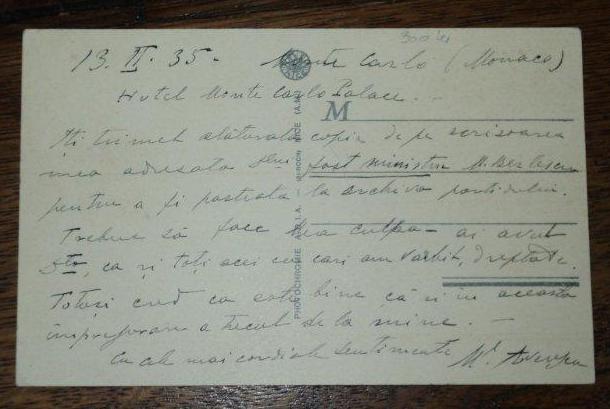 300 lei
13. II. 35. Monte Carlo (Monaco)
Hotel Monte Carlo Palace.
M
Iți trimet alăturata copie de pe scrisoarea
mea adresata dlui fost ministru
pentru a fi pastrata la archiva partidului.
Trebue să fac mea culpa - ai avut
Dta, ca și toți acei cu cari am vorbit, dreptate.
Totuși cred ca este bine că și in aceasta
imprejurare a trecut de la mine. -
Cu cele mai cordiale sentimente
PHOTOCHROMIE A.D.I.A. NICE (A.M.)